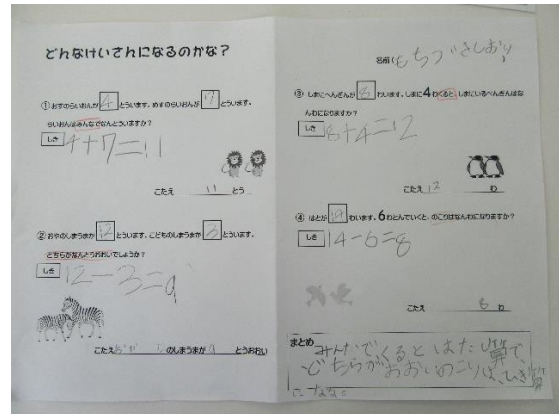 どんなけいさんになるのかな？
①おすのらいおんが 4 とういます。めすのらいおんが 7 とういます。
らいおんはみんなでなんとういますか？
しき 4+7=11
こたえ 11 とう
②おやのしまうまが 12 とういます。こどものしまうまが 3 とういます。
どちらがなんとうおおいでしょうか？
しき 12-3=9
こたえ のしまうまが 9 とうおおい
名前
③しまにぺんぎんが 8 わいます。しまに4わくると、しまにいるぺんぎんはな
んわになりますか？
しき 8+4=12
こたえ 12 わ
④はとが 14 わいます。6わとんでいくと、のこりはなんわになりますか？
しき 14-6=8
こたえ 8 わ
まとめ
みんなで、くるとはたし算で、
どちらがおおい、のこりは、ひき算
になる。